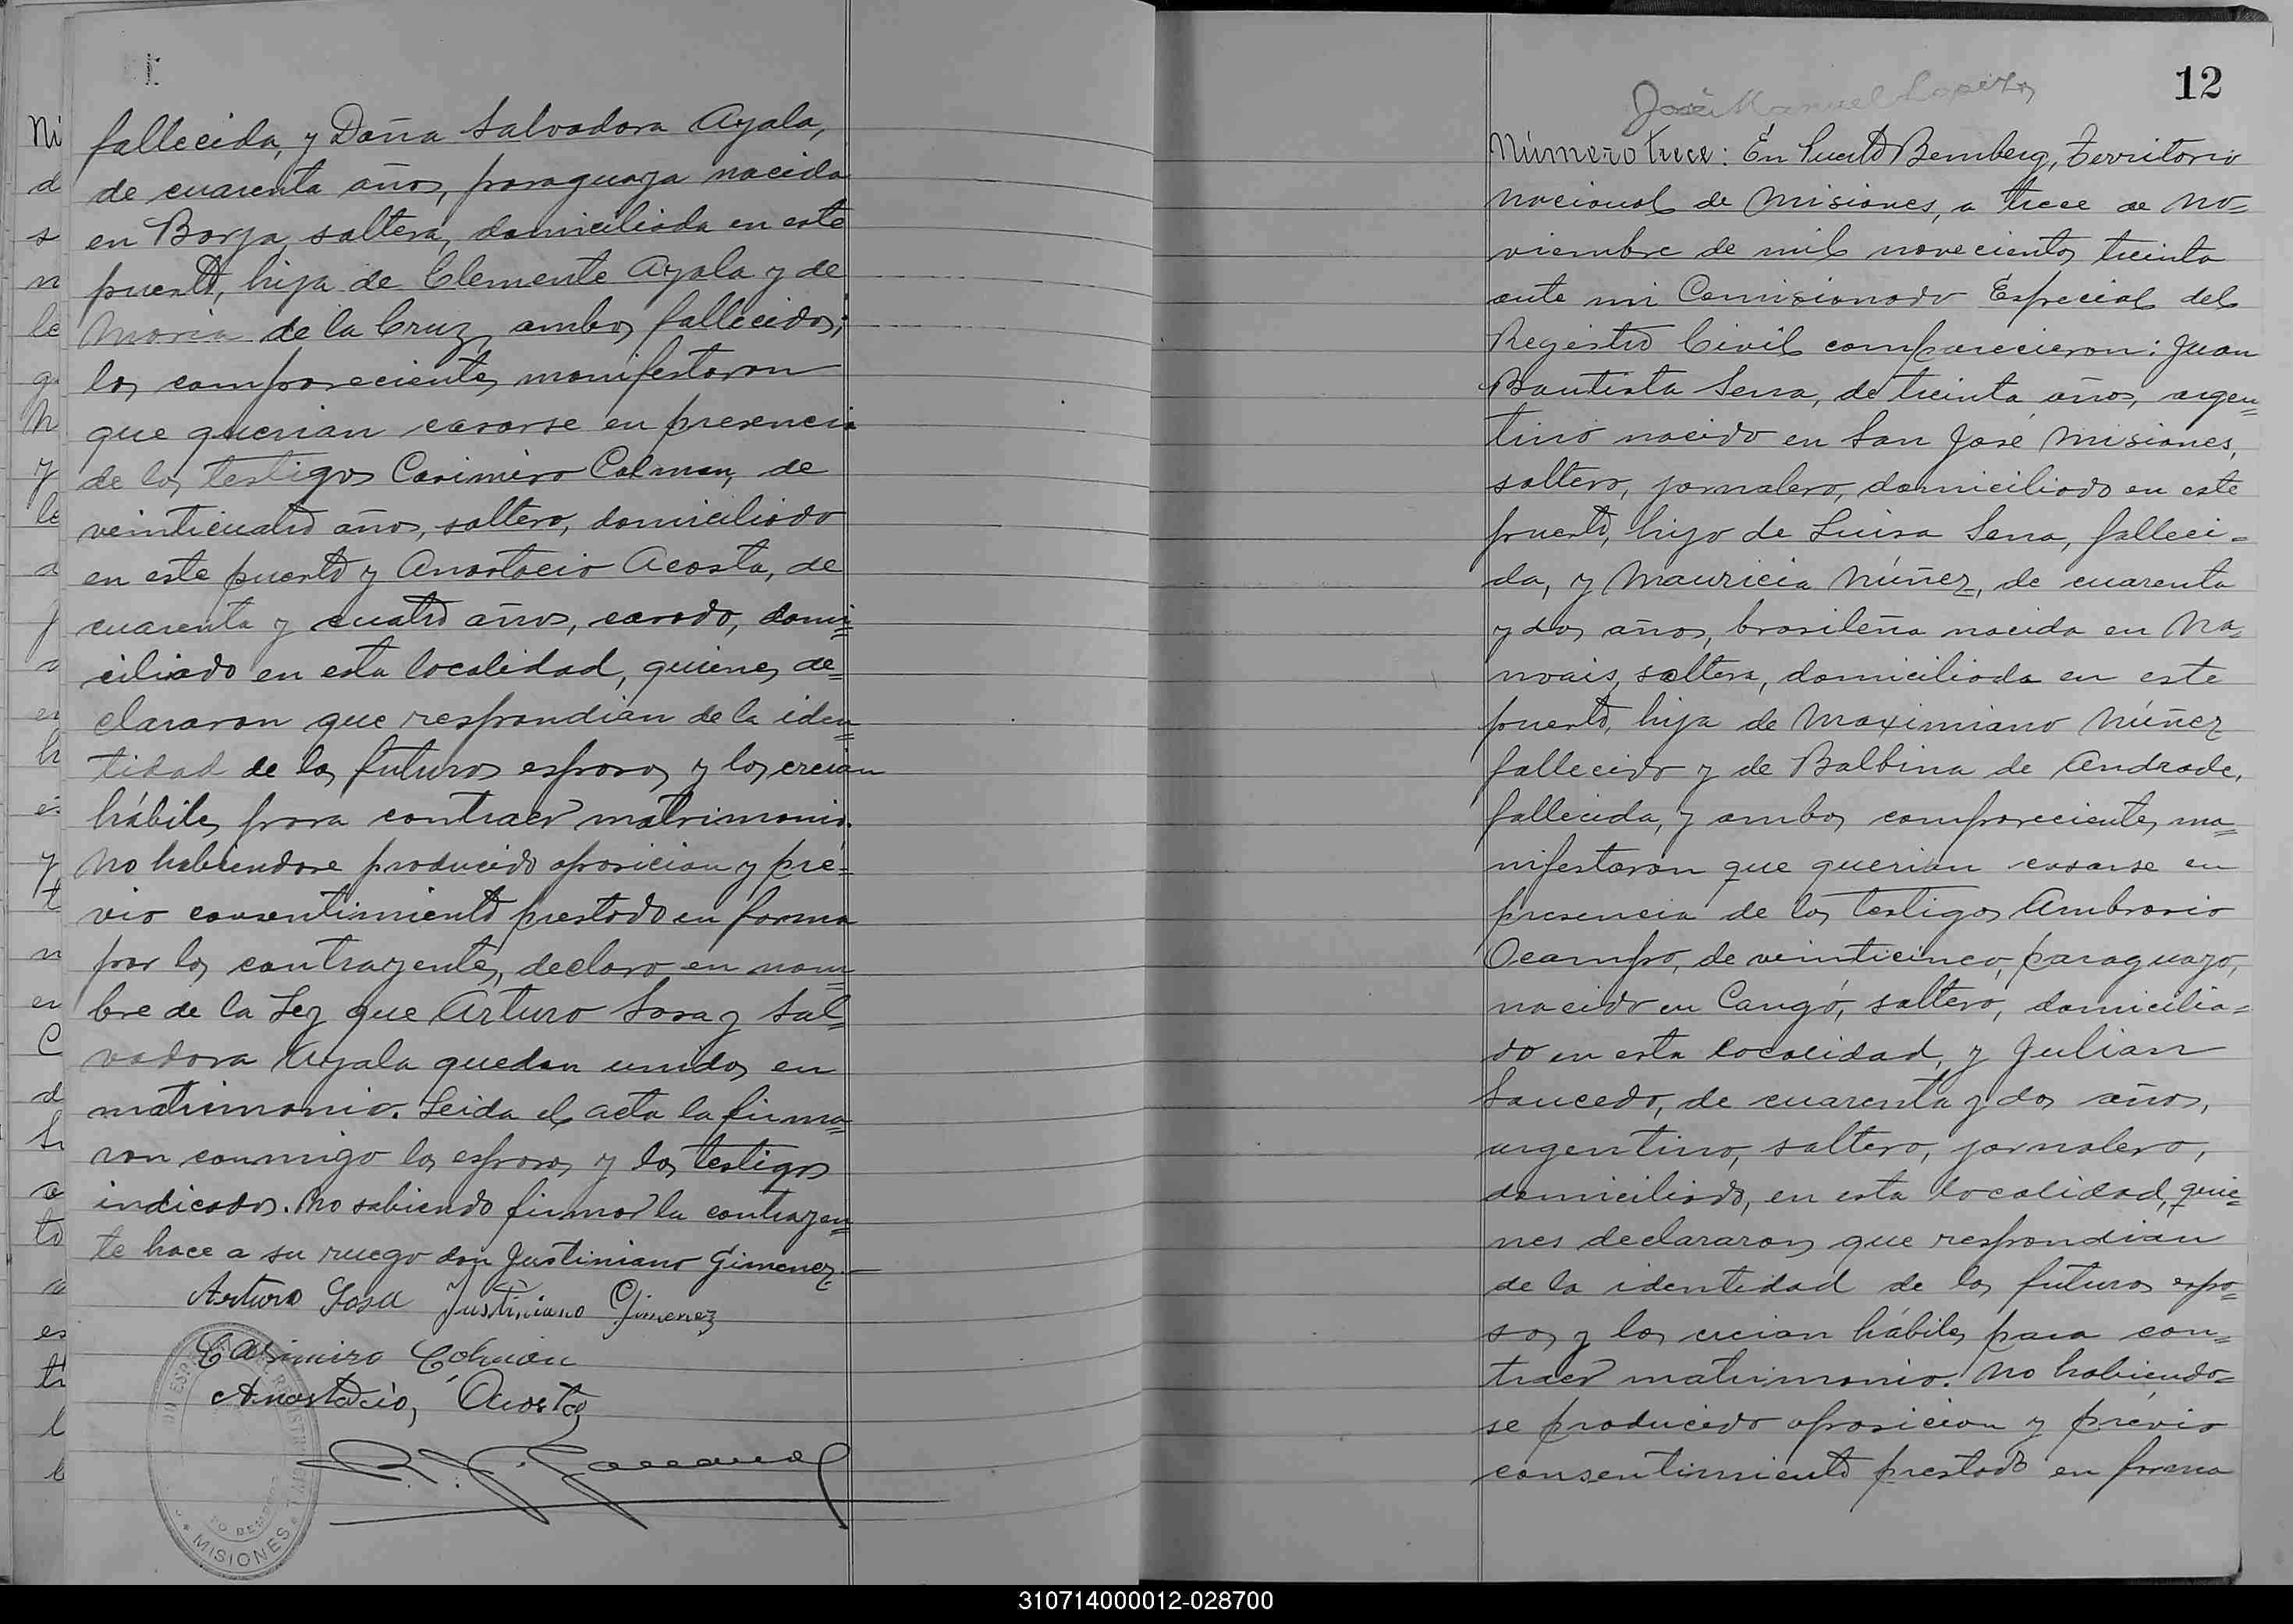 fallecida, y Doña Salvadora Ayala,
de cuarenta años, paraguaya nacida
en Borja, soltera, domiciliada en este
puerto, hija de Clemente Ayala y de
Maria de la Cruz, ambos fallecidos;
los comparecientes manifestaron
que querian casarse en presencia
de los testigos Casimiro Colman, de
veinticuatro años, soltero, domiciliado
en este puerto y Anastacio Acosta, de
cuarenta y cuatro años, casado, domi=
ciliado en esta localidad, quienes de=
clararon que respondian de la iden=
tidad de los futuros esposos y los creian
hábiles para contraer matrimonio.
No habiendose producido oposicion y pré=
vio consentimiento prestado en forma
por los contrayentes, declaro en nom=
bre de la Ley que Arturo Sosa y Sal=
vadora Ayala quedan unidos en
matrimonio. Leida el acta la firma=
ron conmigo los esposos y los testigos
indicados. No sabiendo firmar la contrayen=
te hace a su ruego don Justiniano Gimenez.—
Arturo Sosa Justiniano Gimenez
Casimiro Colmán
Anastacio Acosta
MISIONES
12
José Manuel
Número trece: En Puerto Bemberg, Territorio
Nacional de Misiones, a trece de No=
viembre de mil novecientos treinta
ante mi Comisionado Especial del
Registro Civil comparecieron: Juan
Bautista Sena, de treinta años, argen=
tino nacido en San José Misiones,
soltero, jornalero, domiciliado en este
puerto, hijo de Luisa Sena, falleci=
da, y Mauricia Núñez, de cuarenta
y dos años, brasileña nacida en Na=
novais, soltera, domiciliada en este
puerto, hija de Maximiano Núñez
fallecido y de Balbina de Andrade,
fallecida, y ambos comparecientes ma=
nifestaron que querian casarse en
presencia de los testigos Ambrosio
Ocampo, de veinticinco, paraguayo,
nacido en Cangó, soltero, domicilia=
do en esta localidad, y Julian
Saucedo, de cuarenta y dos años,
argentino, soltero, jornalero,
domiciliado, en esta localidad, quie=
nes declararon que respondian
de la identidad de los futuros espo=
sos y los creian hábiles para con=
traer matrimonio. No habiendo=
se producido oposicion y prévio
consentimiento prestado en forma
310714000012-028700